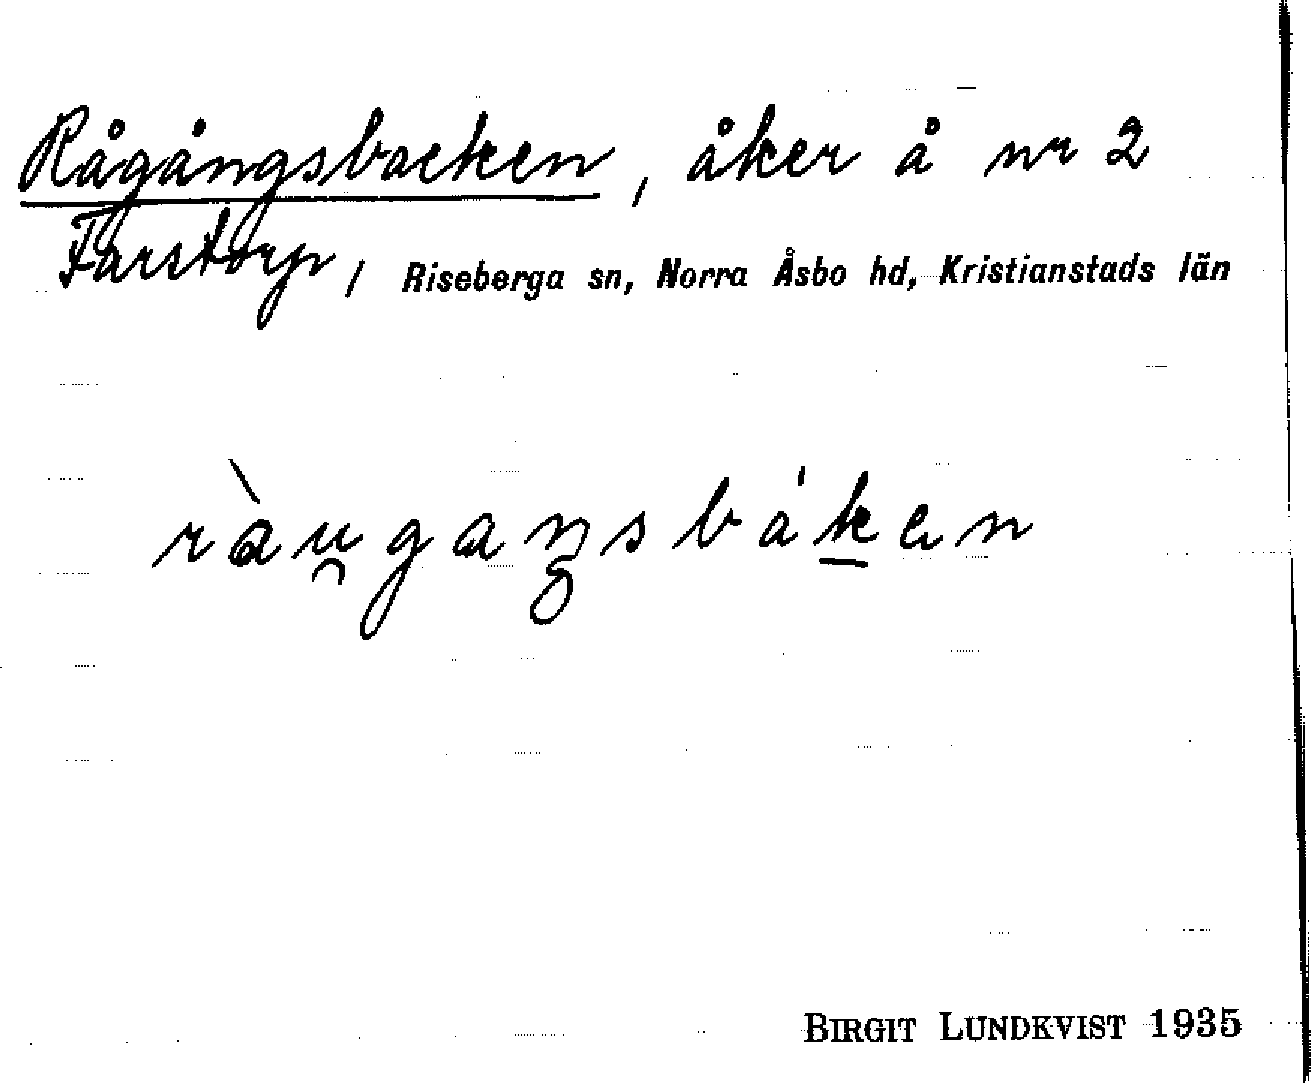 Rågångsbacken, åker å nr 2
Farstorp, Riseberga sn, Norra Åsbo hd, Kristianstads län
ràu̯gaŋsbák̲en
BIRGIT LUNDKVIST 1935